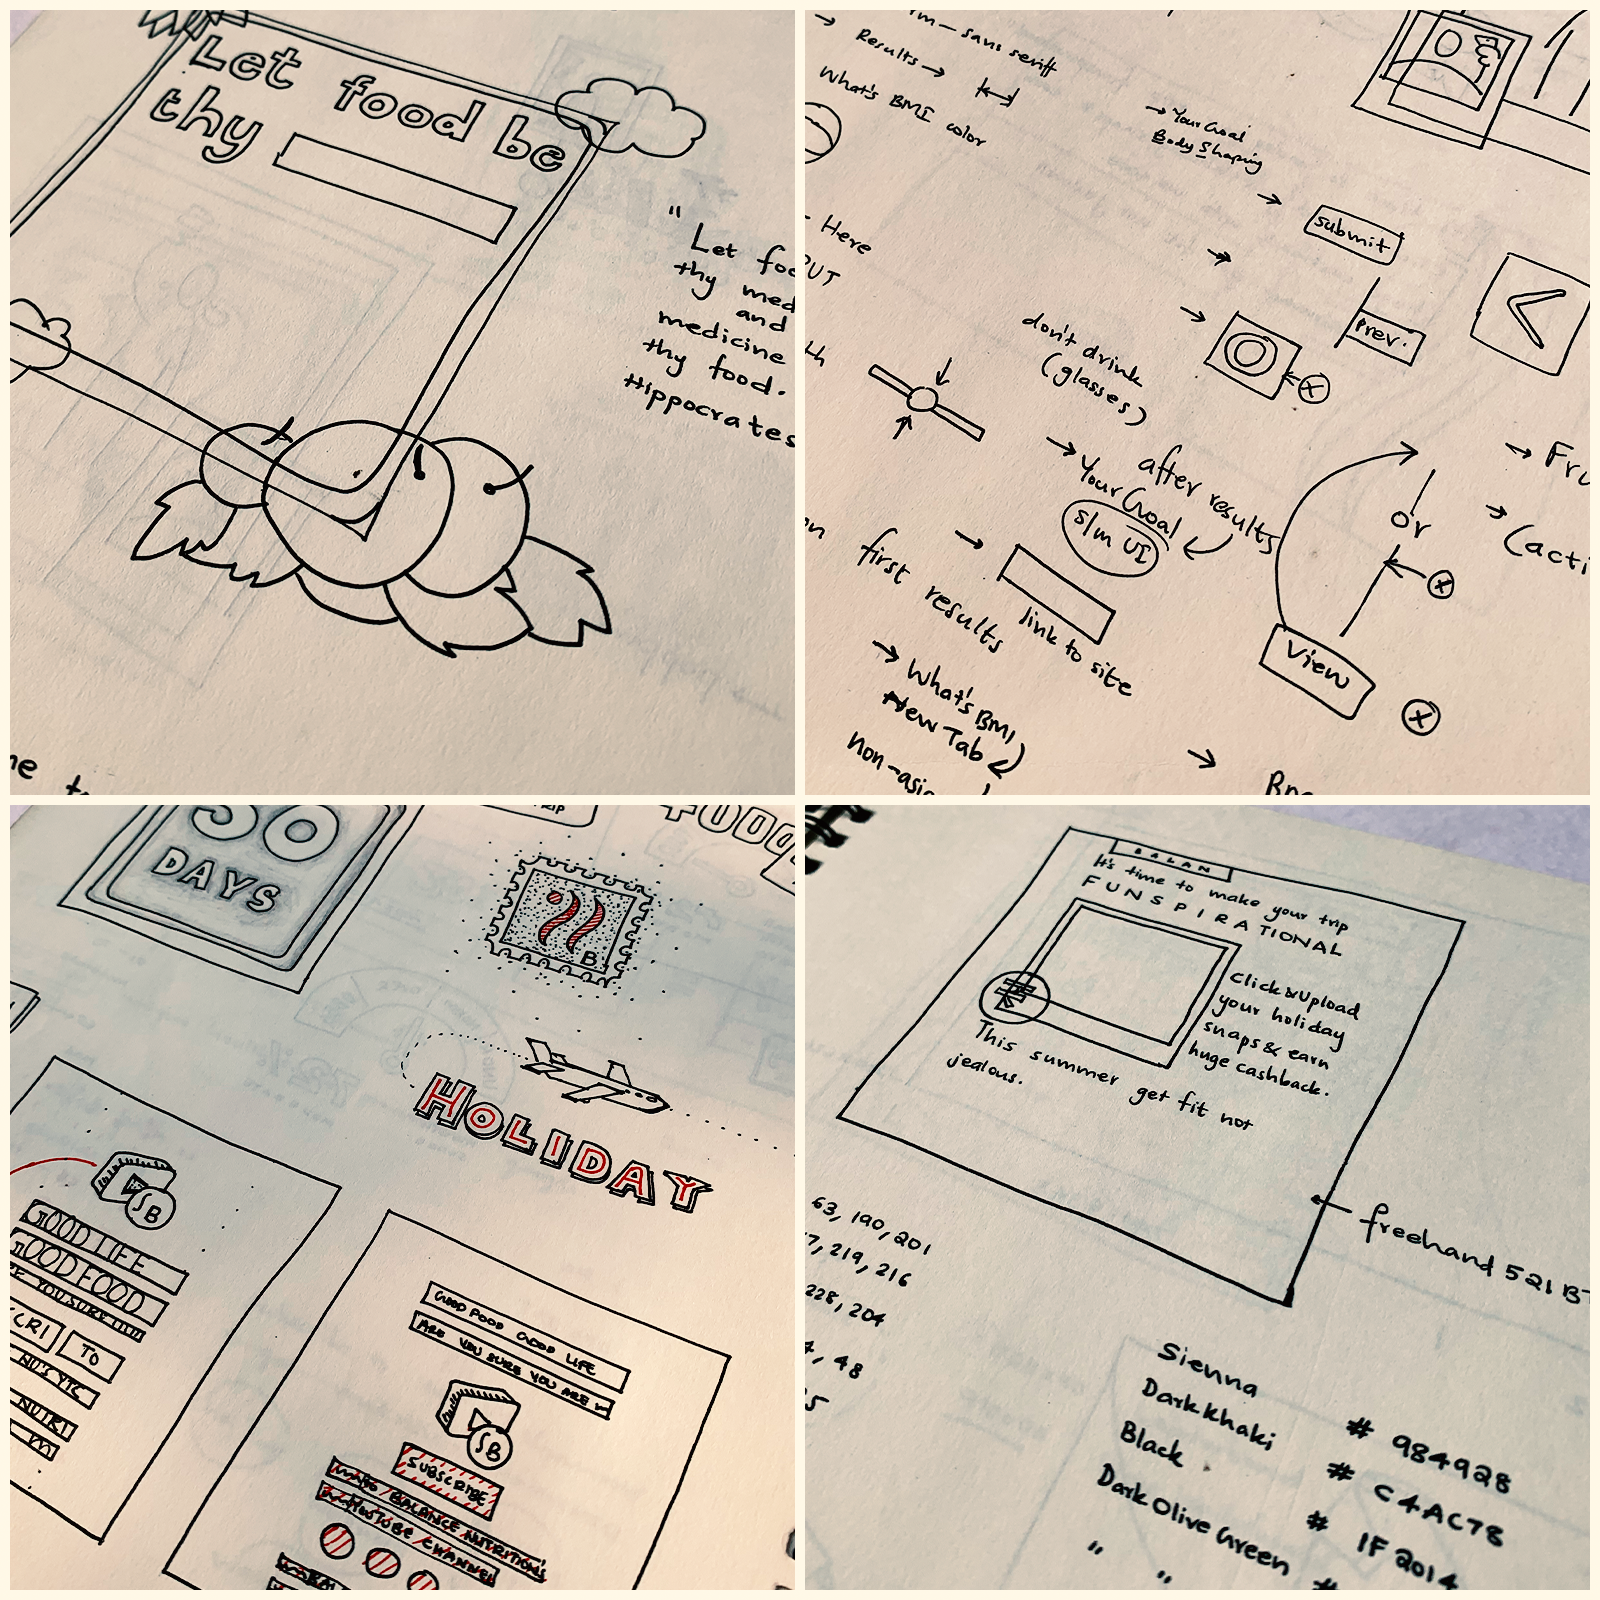 Let food be
thy
"
Let foo
thy med
and
medicine
thy food.
Hippocrates
sans seriff
Results →
What's BMI color
→ Your Goal
Body Shaping
Here
PUT
submit
prev.
don't drink
(glasses)
→ Your Goal
s/m UI
after results
or
→ Fru
→ (acti
first results
link to site
View
→ What's BMI
New Tab
non-asia
30
DAYS
B
HOLIDAY
SB
GOOD LIFE
GOOD FOOD
CRI
TO
NU'S YTC
NUTRI
GOOD FOOD GOOD LIFE
ARE YOU SURE YOU ARE
SB
SUBSCRIBE
BALANCE NUTRITION'S
YOUTUBE CHANNEL
BALAN
It's time to make your trip
FUNSPIRATIONAL
Click & Upload
your holiday
snaps & earn
huge cashback.
This summer get fit not
jealous.
freehand 521 BT
63, 190, 201
7, 219, 216
228, 204
, 48
5
Sienna
Dark Khaki # 984928
Black # C4AC78
Dark Olive Green # 1F2014
" #
"